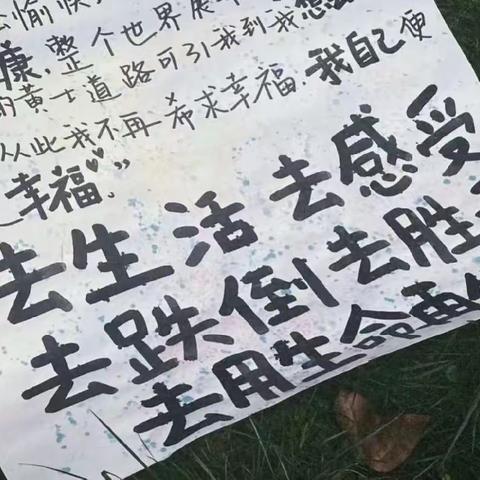 愉快
康,整个世界展
的黄土道路可引我到我想
从此我不再希求幸福,我自己便
幸福。”
去生活 去感受
去跌倒 去胜
去用生命再